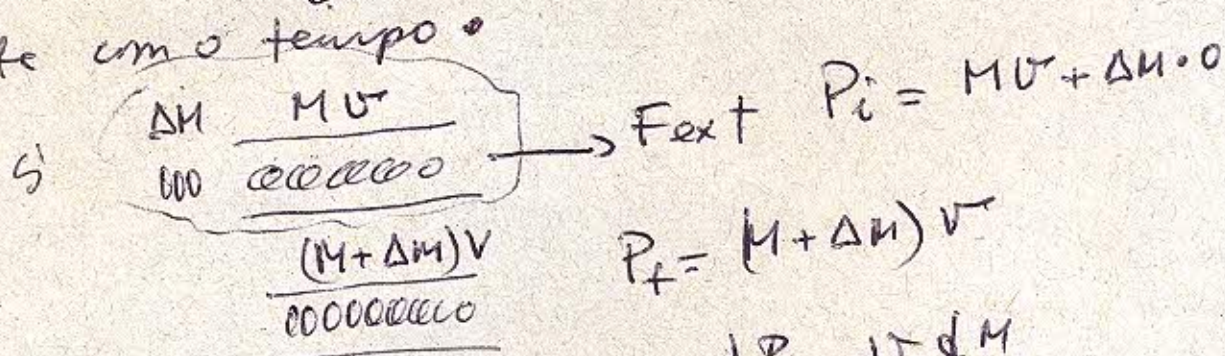 com o tempo.
ΔM Mv
Fext Pi = Mv + ΔM·0
S'
(M+ΔM)V
Pf = (M+ΔM)v
v dM